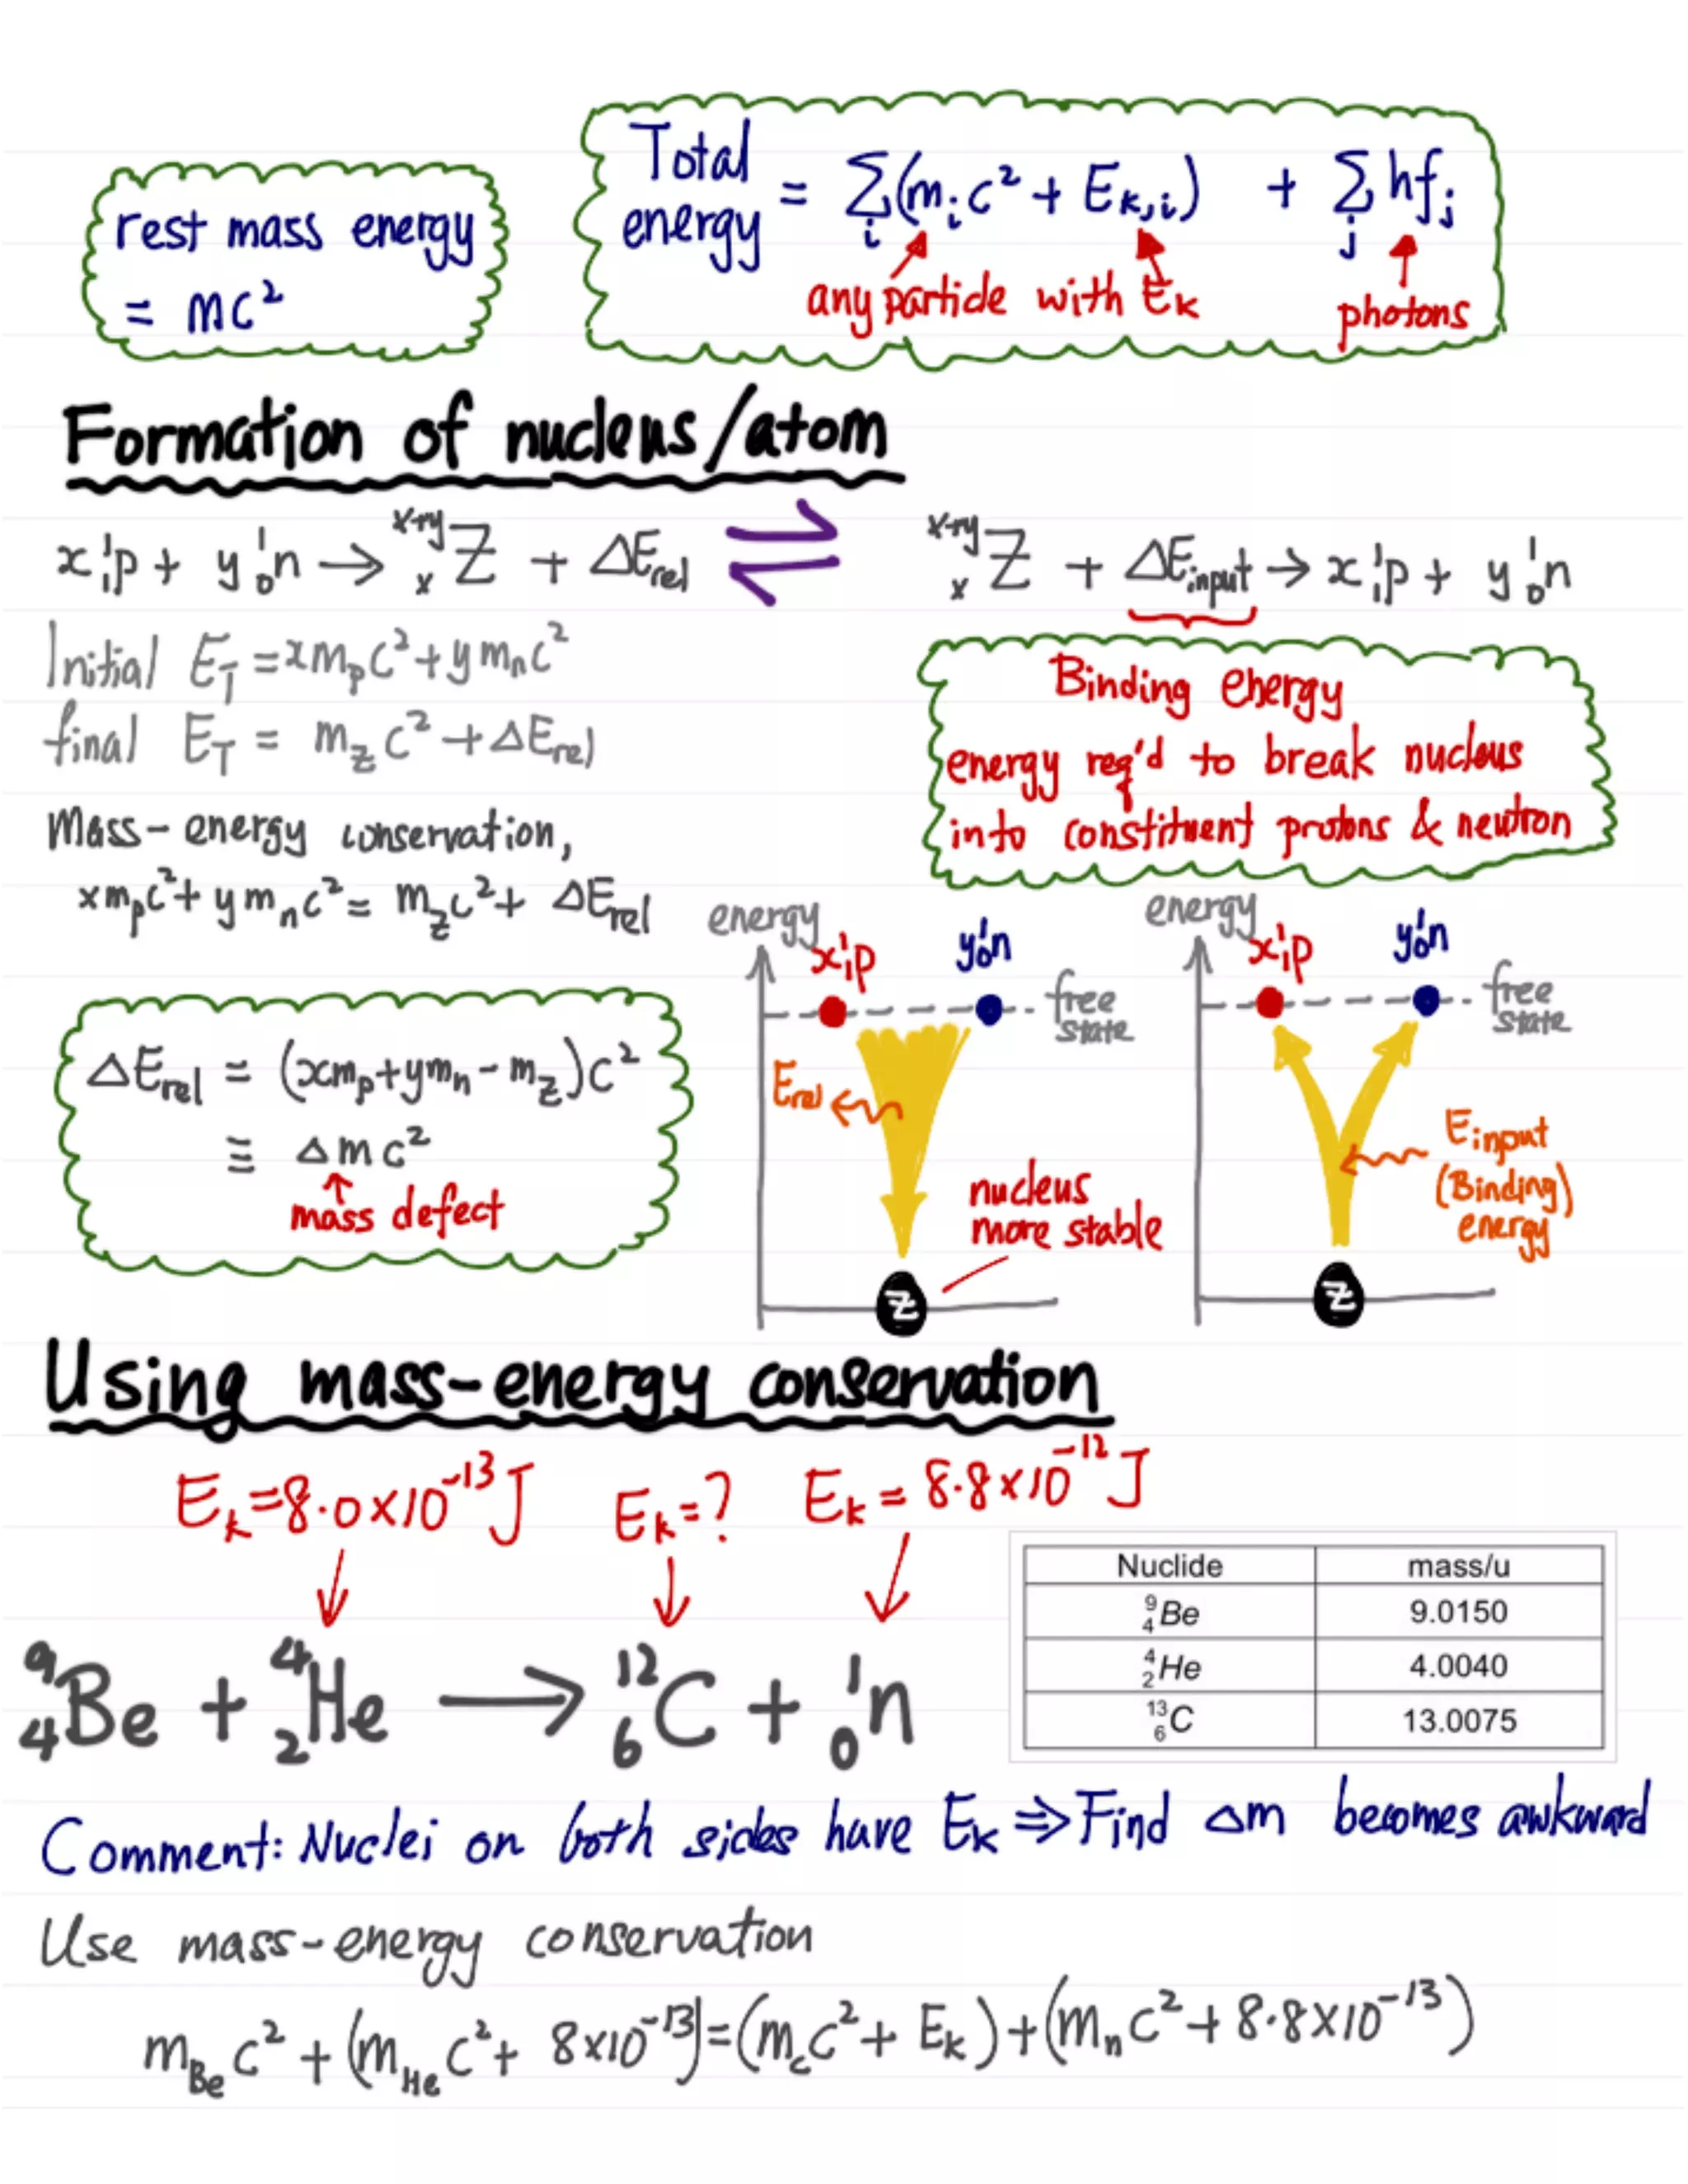 rest mass energy
= mc²
Total energy = Σᵢ(mᵢc² + E_k,i) + Σⱼ hfⱼ
any particle with E_k
photons
Formation of nucleus/atom
x ¹₁p + y ¹₀n → ˣ⁺ʸₓZ + ΔE_rel ⇌ ˣ⁺ʸₓZ + ΔE_input → x ¹₁p + y ¹₀n
Initial E_T = xm_pc² + ym_nc²
final E_T = m_zc² + ΔE_rel
Binding energy
energy req'd to break nucleus
into constituent protons & neutron
Mass-energy conservation,
xm_pc² + ym_nc² = m_zc² + ΔE_rel
ΔE_rel = (xm_p + ym_n - m_z)c²
≡ Δmc²
↑
mass defect
energy
x¹₁p
y¹₀n
free
state
E_rel
nucleus
more stable
Z
energy
x¹₁p
y¹₀n
free
state
E_input
(Binding)
energy
Z
Using mass-energy conservation
E_k=8.0×10⁻¹³J E_k=? E_k = 8.8×10⁻¹²J
⁹₄Be + ⁴₂He → ¹²₆C + ¹₀n
Nuclide mass/u
⁹₄Be 9.0150
⁴₂He 4.0040
¹³₆C 13.0075
Comment: Nuclei on both sides have E_k ⇒ Find Δm becomes awkward
Use mass-energy conservation
m_Be c² + (m_He c² + 8×10⁻¹³) = (m_c c² + E_k) + (m_n c² + 8.8×10⁻¹³)